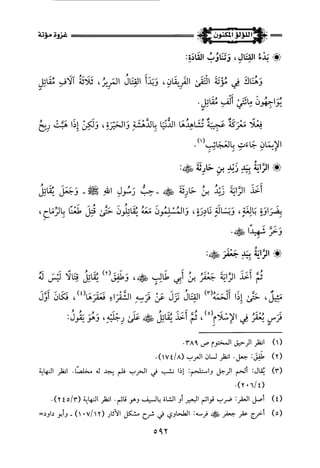 اللؤلؤ المكنون
غزوة مؤتة
بَدْءُ القِتَالِ، وَتَنَاوُبُ القَادَةِ:
وَهُنَاكَ فِي مُؤْتَةَ الْتَقَى الفَرِيقَانِ، وَبَدَأَ القِتَالُ المَرِيرُ، ثَلَاثَةُ آلَافِ مُقَاتِلٍ
يُوَاجِهُونَ مِائَتَيْ أَلْفِ مُقَاتِلٍ.
فِعْلًا مَعْرَكَةٌ عَجِيبَةٌ تُشَاهِدُهَا الدُّنْيَا بِالدَّهْشَةِ وَالحَيْرَةِ، وَلَكِنْ إِذَا هَبَّتْ رِيحُ
الإِيمَانِ جَاءَتْ بِالعَجَائِبِ(١).
الرَّايَةُ بِيَدِ زَيْدِ بنِ حَارِثَةَ ﷺ:
أَخَذَ الرَّايَةَ زَيْدُ بنُ حَارِثَةَ ﷺ - حِبُّ رَسُولِ اللهِ ﷺ - وَجَعَلَ يُقَاتِلُ
بِضَرَاوَةٍ بَالِغَةٍ، وَبَسَالَةٍ نَادِرَةٍ، وَالمُسْلِمُونَ مَعَهُ يُقَاتِلُونَ حَتَّى قُتِلَ طَعْنًا بِالرِّمَاحِ،
وَخَرَّ شَهِيدًا
الرَّايَةُ بِيَدِ جَعْفَرٍ
ثُمَّ أَخَذَ الرَّايَةَ جَعْفَرُ بنُ أَبِي طَالِبٍ، وَطَفِقَ(٢) يُقَاتِلُ قِتَالًا لَيْسَ لَهُ
مَثِيلٌ، حَتَّى إِذَا أَلْحَمَهُ(٣) القِتَالُ نَزَلَ عَنْ فَرَسِهِ الشَّقْرَاءِ فَعَقَرَهَا(٤)، فَكَانَ أَوَّلَ
فَرَسٍ يُعْقَرُ فِي الإِسْلَامِ(٥)، ثُمَّ أَخَذَ يُقَاتِلُ عَلَى رِجْلَيْهِ، وَهُوَ يَقُولُ:
(١) انظر الرحيق المختوم ص ٣٨٩.
(٢) طَفِقَ: جعل. انظر لسان العرب (٨/١٧٤).
(٣) يُقال: ألحم الرجل واستلحم: إذا نشب في الحرب فلم يجد له مخلصًا. انظر النهاية
(٤/٢٠٦).
(٤) أصل العقر: ضرب قوائم البعير أو الشاة بالسيف وهو قائم. انظر النهاية (٣/٢٤٥).
(٥) أخرج عقر جعفر فرسه: الطحاوي في شرح مشكل الآثار (١٢/١٠٧) - وأبو داود=
٥٩٢